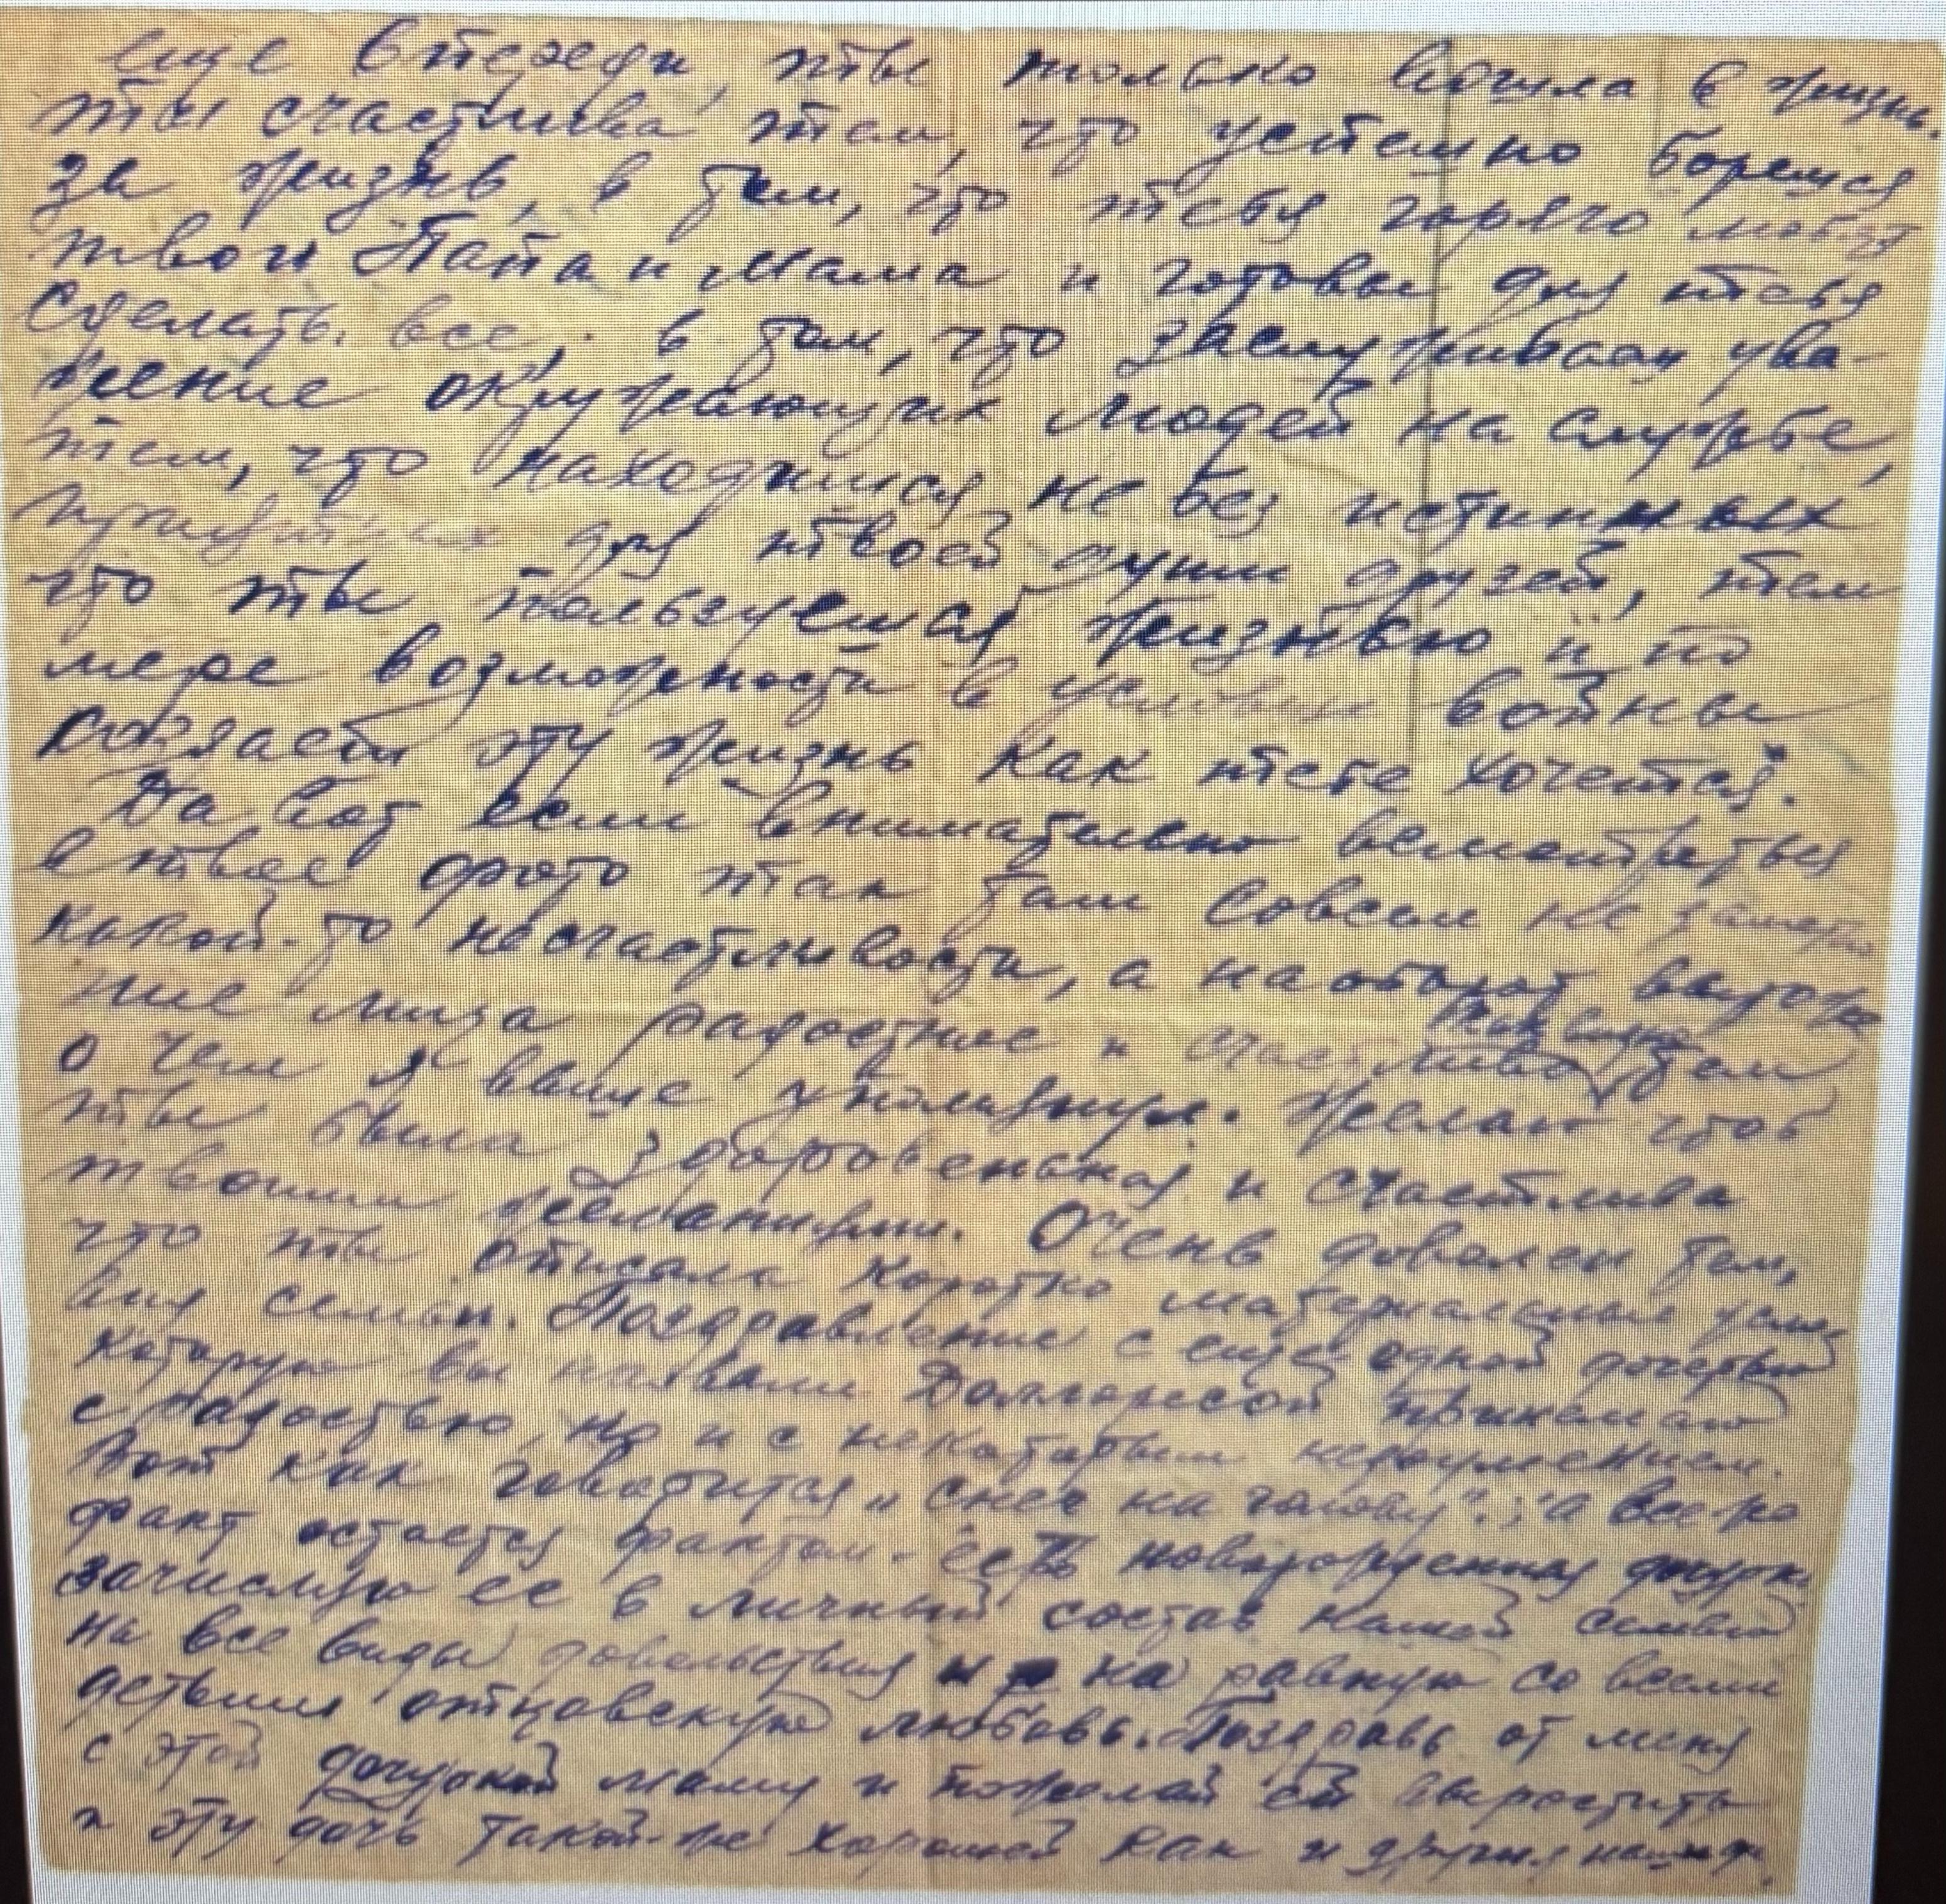 еще впереди, ты только вошла в жизнь.
ты счастлива тем, что успешно борешся
за жизнь, в том, что тебя горячо любят
твои Папа и Мама и готовы для тебя
сделать все, в том, что заслуживаеш ува-
жение окружающих людей на службе,
тем, что находишся не без истинных
для твоей души друзей, тем
что ты пользуешся жизнью и по
мере возможности в условиях войны
создаеш эту жизнь как тебе хочется.
Да вот если внимательно всмотреться
в твое фото так там совсем не заметно
какой-то несчастливости, а наоборот выраже
ние лица радостное и счастливо
как видно тем
о чем я выше упомянул. Желаю чтоб
ты была здоровенькая и счастлива
твоими Очень доволен тем,
что ты описала коротко материальные усло-
вия семьи. Поздравление с еще одной дочерью
которую вы назвали Долоресой принимаю
с радостью, но и с некоторым недоумением.
Вот как говорится "снег на голову".; а все-же
факт остается фактом - есть новорожденная дочурка.
зачисляю ее в личный состав нашей семьи
на все виды довольствия и на равную со всеми
детьми отцовскую любовь. Поздравь от меня
с этой дочуркой маму и пожелай ей выростить
и эту дочь такой-же хорошей как и другия наши